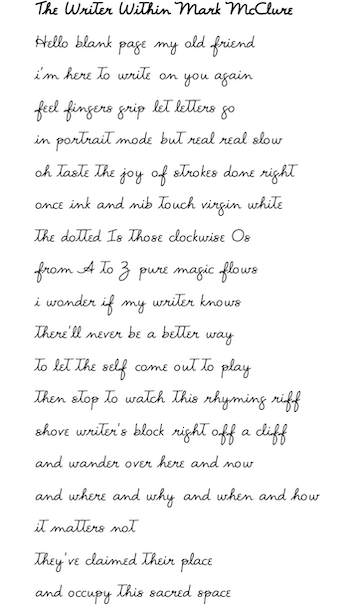 The Writer Within Mark McClure
Hello blank page my old friend
i'm here to write on you again
feel fingers grip let letters go
in portrait mode but real real slow
oh taste the joy of strokes done right
once ink and nib touch virgin white
the dotted Is those clockwise Os
from A to Z pure magic flows
i wonder if my writer knows
there'll never be a better way
to let the self come out to play
then stop to watch this rhyming riff
shove writer's block right off a cliff
and wander over here and now
and where and why and when and how
it matters not
they've claimed their place
and occupy this sacred space